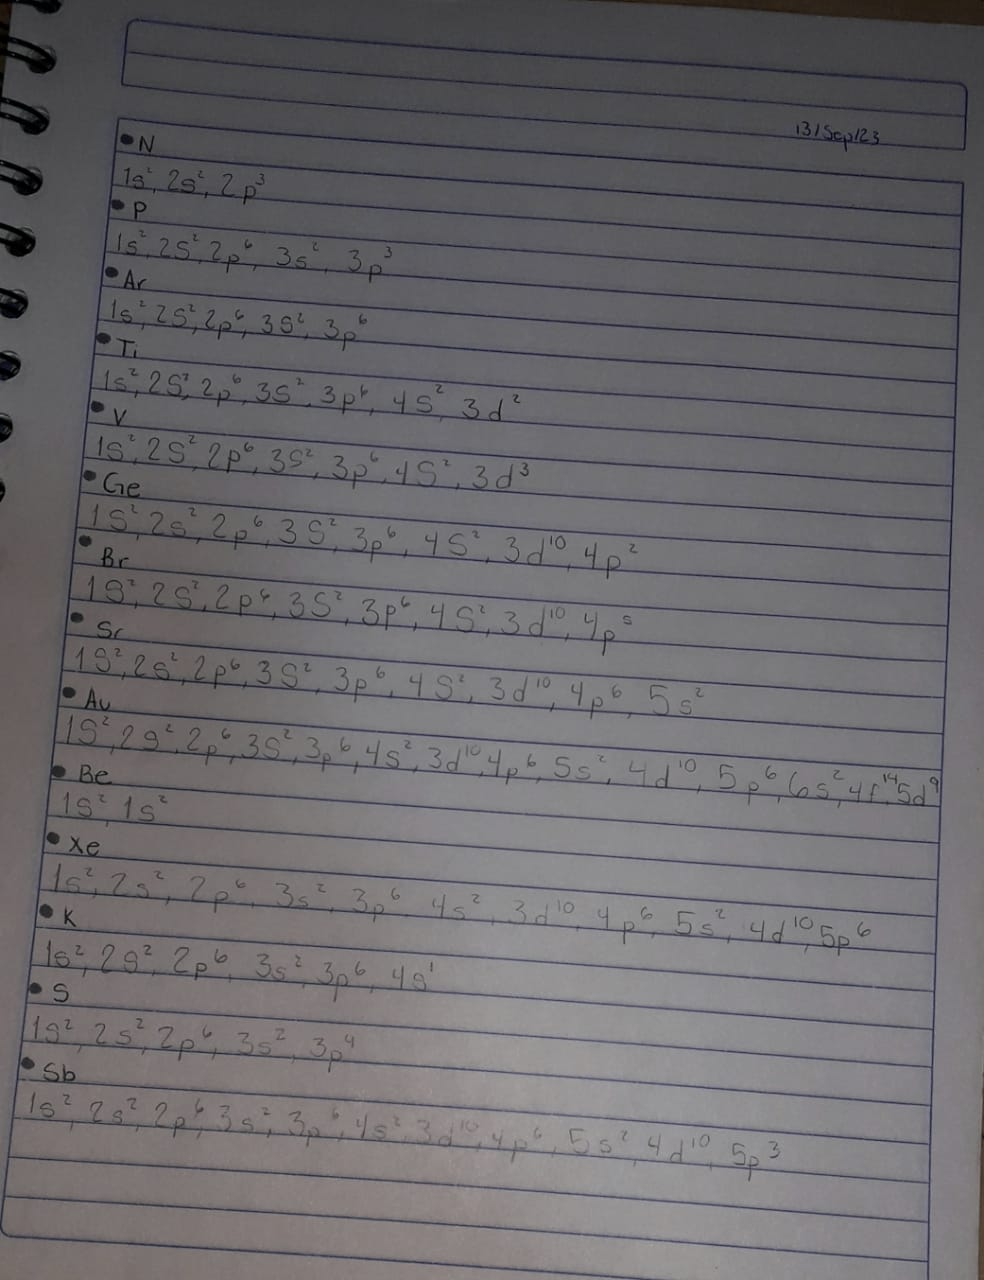 13/Sep/23
• N
1s², 2s², 2p³
• P
1s², 2s², 2p⁶, 3s², 3p³
• Ar
1s², 2s², 2p⁶, 3s², 3p⁶
• Ti
1s², 2s², 2p⁶, 3s², 3p⁶, 4s², 3d²
• V
1s², 2s², 2p⁶, 3s², 3p⁶, 4s², 3d³
• Ge
1s², 2s², 2p⁶, 3s², 3p⁶, 4s², 3d¹⁰, 4p²
• Br
1s², 2s², 2p⁶, 3s², 3p⁶, 4s², 3d¹⁰, 4p⁵
• Sr
1s², 2s², 2p⁶, 3s², 3p⁶, 4s², 3d¹⁰, 4p⁶, 5s²
• Au
1s², 2s², 2p⁶, 3s², 3p⁶, 4s², 3d¹⁰, 4p⁶, 5s², 4d¹⁰, 5p⁶, 6s², 4f¹⁴, 5d⁹
• Be
1s², 1s²
• Xe
1s², 2s², 2p⁶, 3s², 3p⁶, 4s², 3d¹⁰, 4p⁶, 5s², 4d¹⁰, 5p⁶
• K
1s², 2s², 2p⁶, 3s², 3p⁶, 4s¹
• S
1s², 2s², 2p⁶, 3s², 3p⁴
• Sb
1s², 2s², 2p⁶, 3s², 3p⁶, 4s², 3d¹⁰, 4p⁶, 5s², 4d¹⁰, 5p³